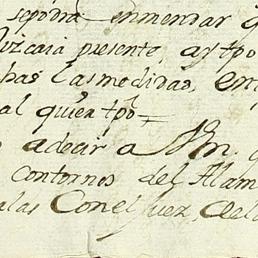 sepodra enmendar q
uizcaia presente, aytpo
has las modidas, en
al quier tpo
adecir a
contornos del Alam
alas Con el Juez, de